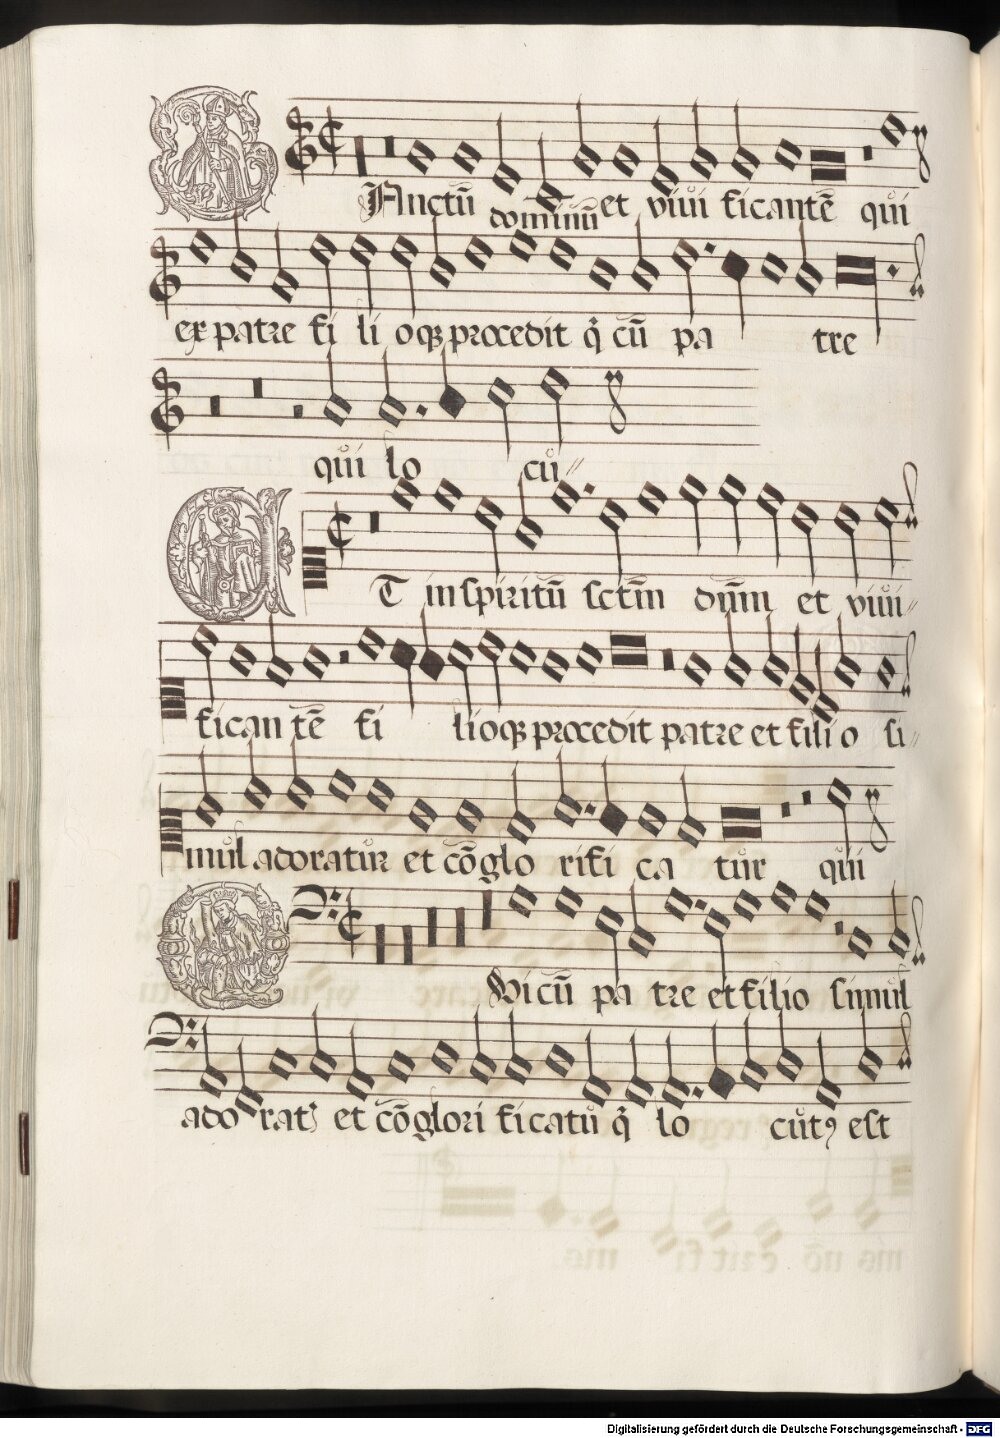 SAnctū dominū et viui ficantē qui
ex patre fi li oqꝫ procedit q̇ cū pa tre
qui lo cu//
ET in spiritū sctm̄ dūm et viui//
fican tē fi lioqꝫ procedit patre et filio si//
mul adoratur et cōglo rifi ca tur qui
QVi cū pa tre et filio simul
ado rat᷑ et cōglori ficatu q̇ lo cutꝰ est
Digitalisierung gefördert durch die Deutsche Forschungsgemeinschaft - DFG